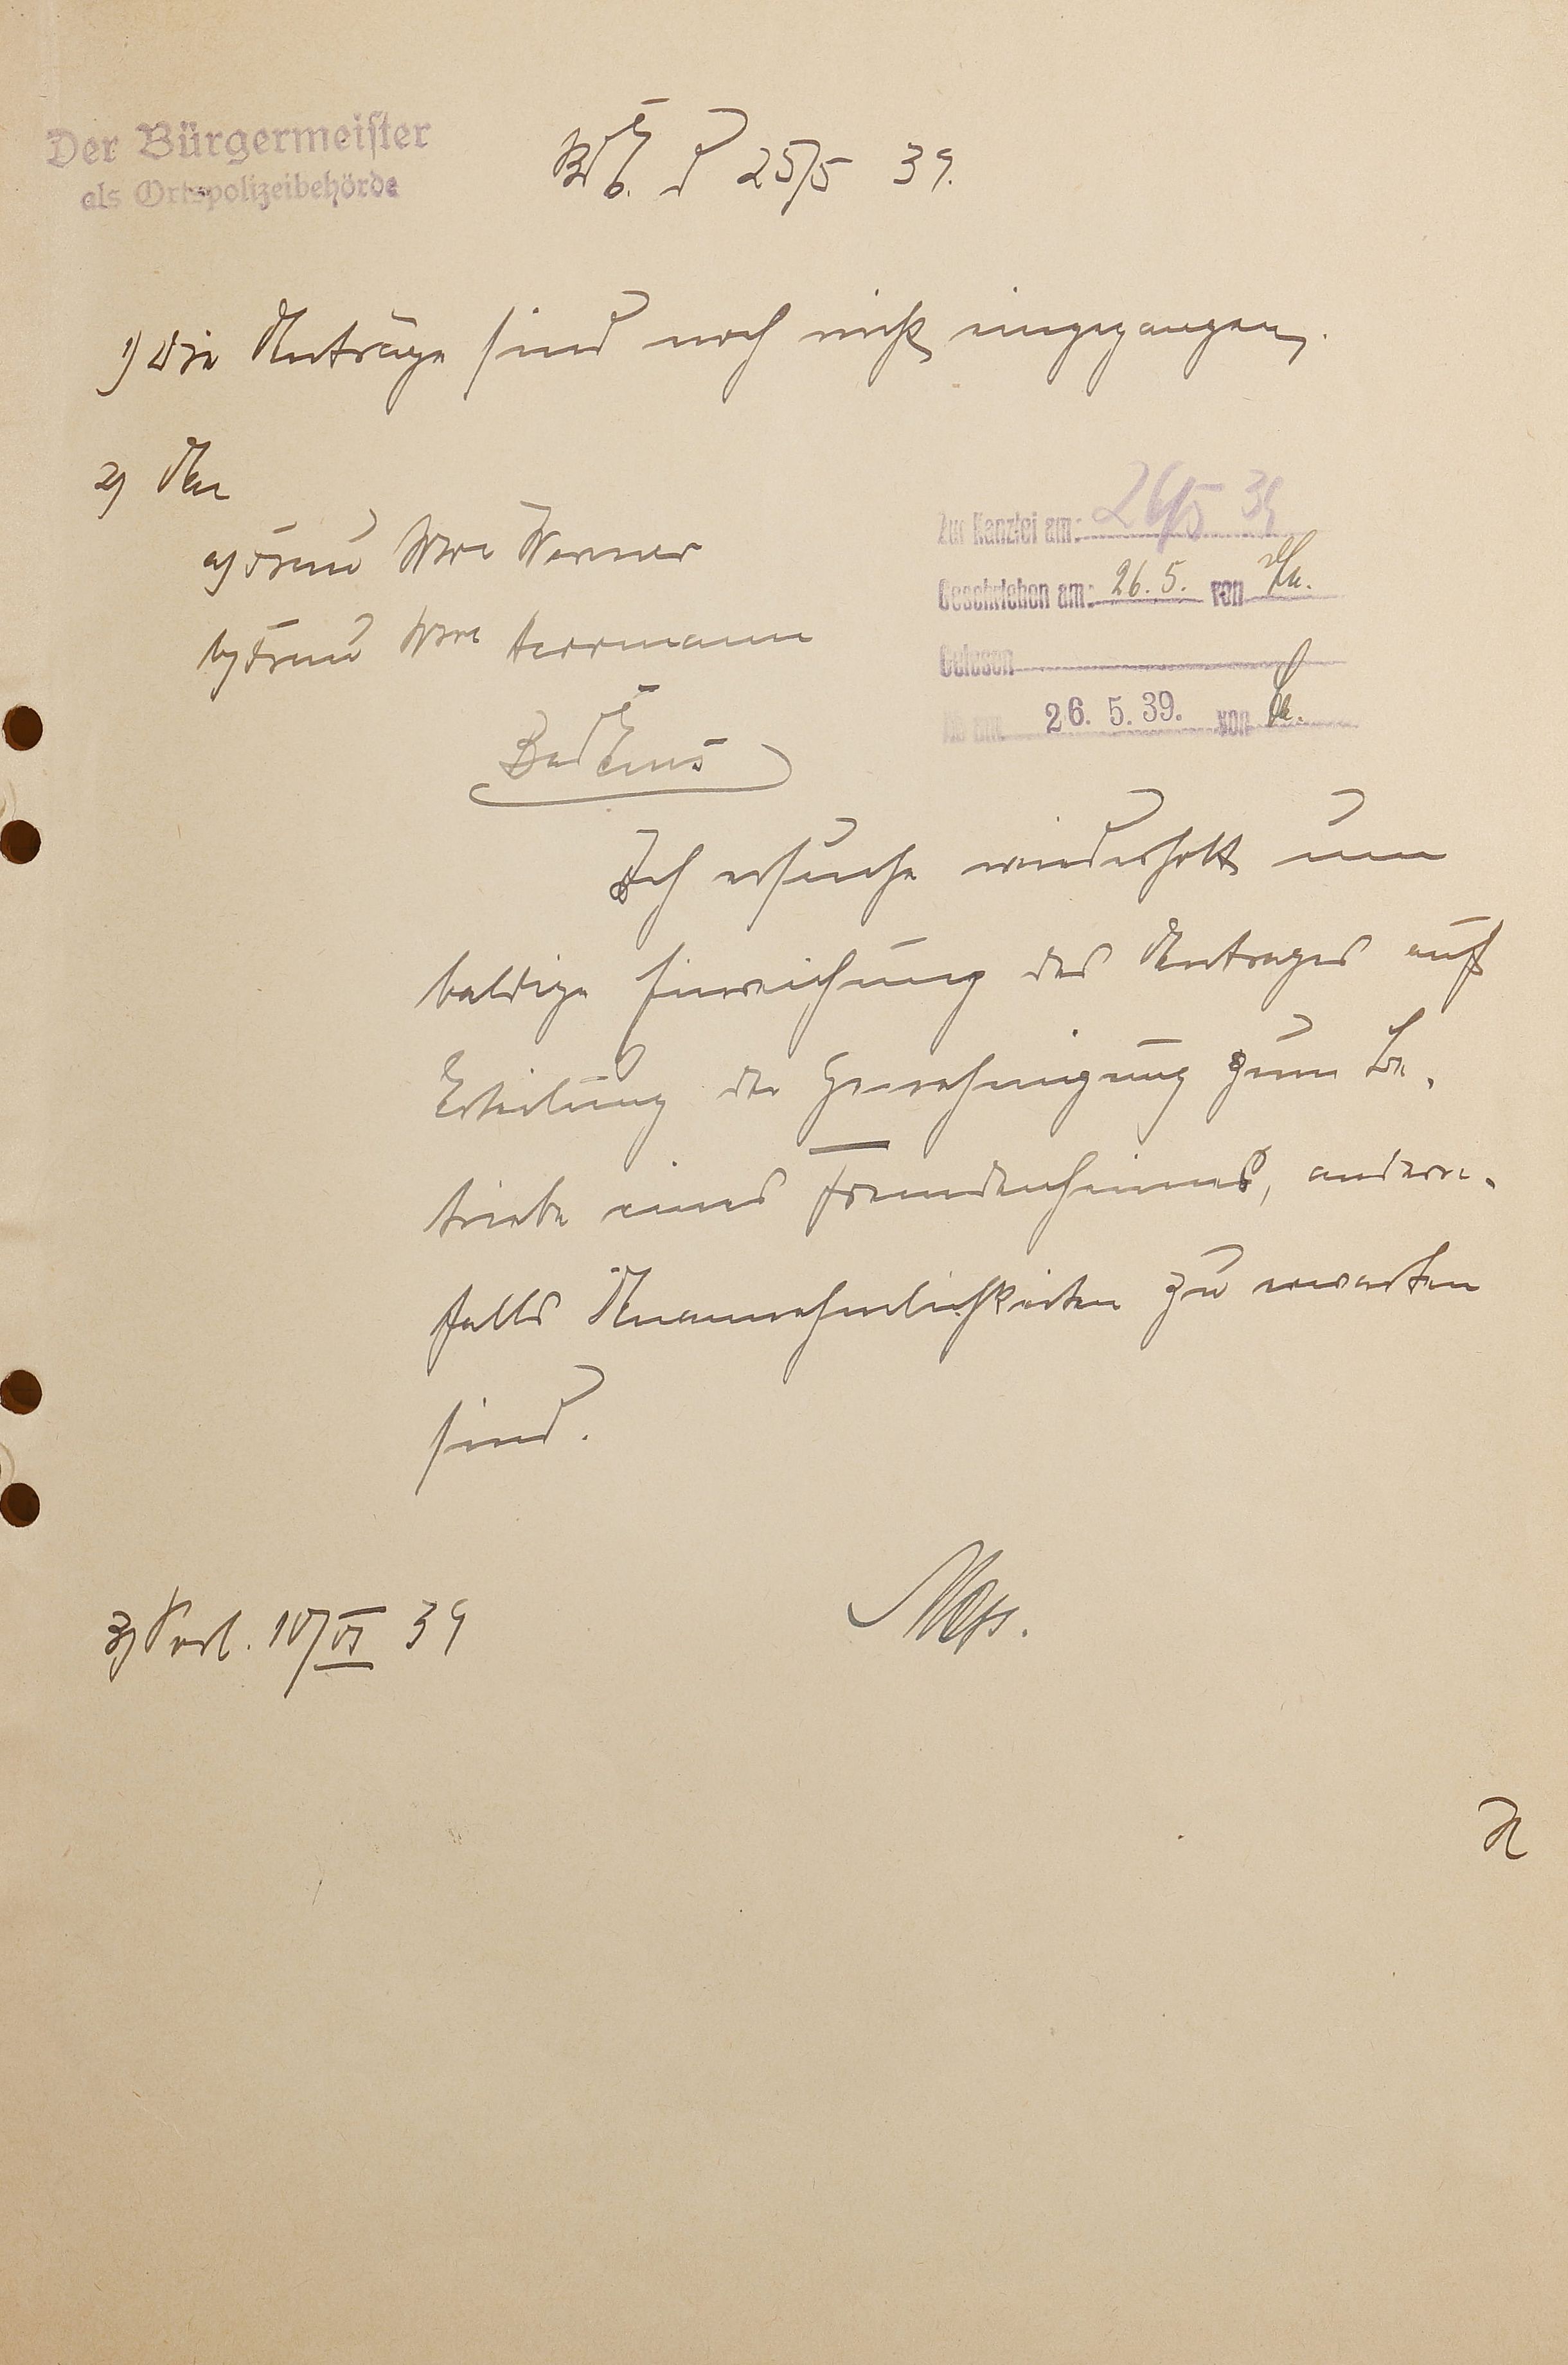 Der Bürgermeister
als Ortspolizeibehörde
25/5 39.
1) Die Anträge sind noch nicht eingegangen.
2) An
a) Frau Wwe Werner
b) Frau Wwe Herrmann
Bad Ems
Zur Kanzlei am: 26/5 39
Geschrieben am: 26. 5. von
Gelesen
Ab am 26. 5. 39. von
Ich ersuche wiederholt um
baldige Einreichung des Antrages auf
Erteilung der Genehmigung zum Be-
triebe eines Fremdenheimes, andern-
falls Unannehmlichkeiten zu erwarten
sind.
3) Vorl. 10/VI 39